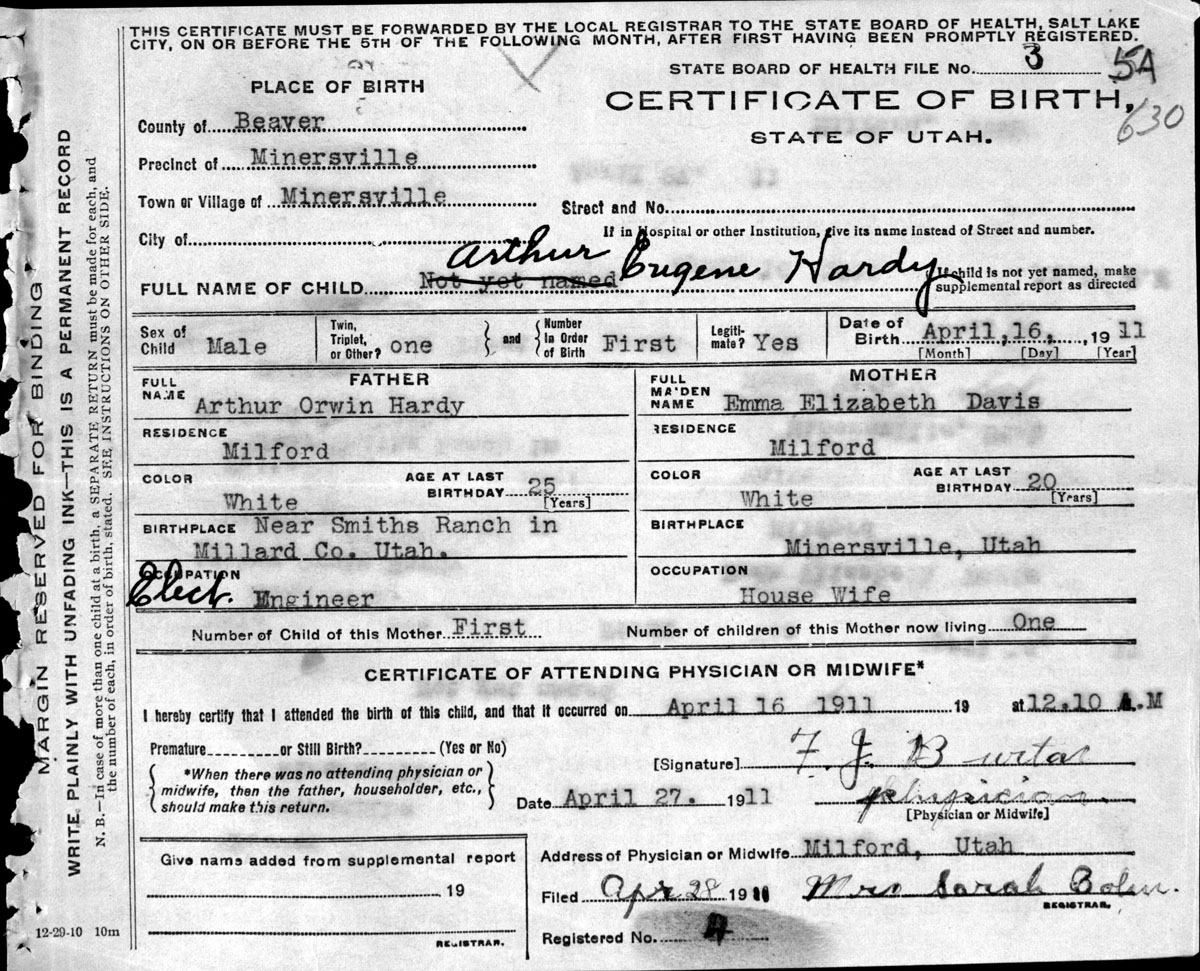 THIS CERTIFICATE MUST BE FORWARDED BY THE LOCAL REGISTRAR TO THE STATE BOARD OF HEALTH, SALT LAKE
CITY, ON OR BEFORE THE 5TH OF THE FOLLOWING MONTH, AFTER FIRST HAVING BEEN PROMPTLY REGISTERED.
STATE BOARD OF HEALTH FILE No. 3 54
630
PLACE OF BIRTH
CERTIFICATE OF BIRTH,
STATE OF UTAH.
County of Beaver
Precinct of Minersville
Town or Village of Minersville
Street and No.
City of
If in Hospital or other Institution, give its name instead of Street and number.
Arthur Eugene Hardy
FULL NAME OF CHILD Not yet named
If child is not yet named, make
supplemental report as directed
Sex of Child Male
Twin, Triplet, or Other? one
and Number In Order of Birth First
Legitimate? Yes
Date of Birth April, 16, 1911
[Month] [Day] [Year]
FATHER
FULL NAME Arthur Orwin Hardy
RESIDENCE
Milford
COLOR White
AGE AT LAST BIRTHDAY 25
[Years]
BIRTHPLACE Near Smiths Ranch in
Millard Co. Utah.
OCCUPATION
Elect. Engineer
MOTHER
FULL MAIDEN NAME Emma Elizabeth Davis
RESIDENCE
Milford
COLOR White
AGE AT LAST BIRTHDAY 20
[Years]
BIRTHPLACE
Minersville, Utah
OCCUPATION
House Wife
Number of Child of this Mother First
Number of children of this Mother now living One
CERTIFICATE OF ATTENDING PHYSICIAN OR MIDWIFE*
I hereby certify that I attended the birth of this child, and that it occurred on April 16 1911 19 at 12.10 A.M
Premature or Still Birth? (Yes or No)
*When there was no attending physician or
midwife, then the father, householder, etc.,
should make this return.
[Signature] F. J. Burton
Date April 27. 1911 physician.
[Physician or Midwife]
Give name added from supplemental report
19
REGISTRAR.
Address of Physician or Midwife Milford, Utah
Filed Apr 28 1911 Mrs Sarah
REGISTRAR.
Registered No. 4
12-29-10 10m
MARGIN RESERVED FOR BINDING
WRITE PLAINLY WITH UNFADING INK—THIS IS A PERMANENT RECORD
N. B.—In case of more than one child at a birth, a SEPARATE RETURN must be made for each, and
the number of each, in order of birth, stated. SEE INSTRUCTIONS ON OTHER SIDE.